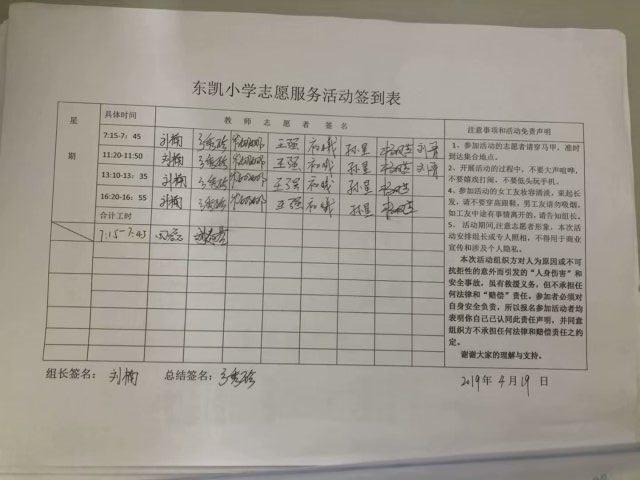 东凯小学志愿服务活动签到表
星期
具体时间
教师志愿者签名
注意事项和活动免责声明
7:15-7:45 刘楠 王强 孙昱
11:20-11:50 刘楠 王强 孙昱
13:10-13:35 刘楠 王强 孙昱
16:20-16:55 刘楠 王强 孙昱
合计工时
7:15-7:43
1、参加活动的志愿者请穿马甲，准时
到达集合地点。
2、开展活动的过程中，不要大声喧哗，
不要嬉戏打闹，不要低头玩手机。
4、参加活动的女工友妆容清淡，束起长
发，请不要穿高跟鞋，男工友请勿吸烟。
如工友中途有事情离开的，请告知组长。
5、活动期间，注意志愿者形象，本次活
动安排组长或专人照相，不得用于商业
宣传和涉及个人隐私。
本次活动组织方对人为原因或不可
抗拒性的意外而引发的“人身伤害”和
安全事故，虽有救援义务，但不承担任
何法律和“赔偿”责任。参加者必须对
自身安全负责，所以报名参加活动者均
表明你自己已认同此责任声明，并同意
组织方不承担任何法律和赔偿责任之约
定。
谢谢大家的理解与支持。
组长签名：刘楠 总结签名： 2019年4月19日